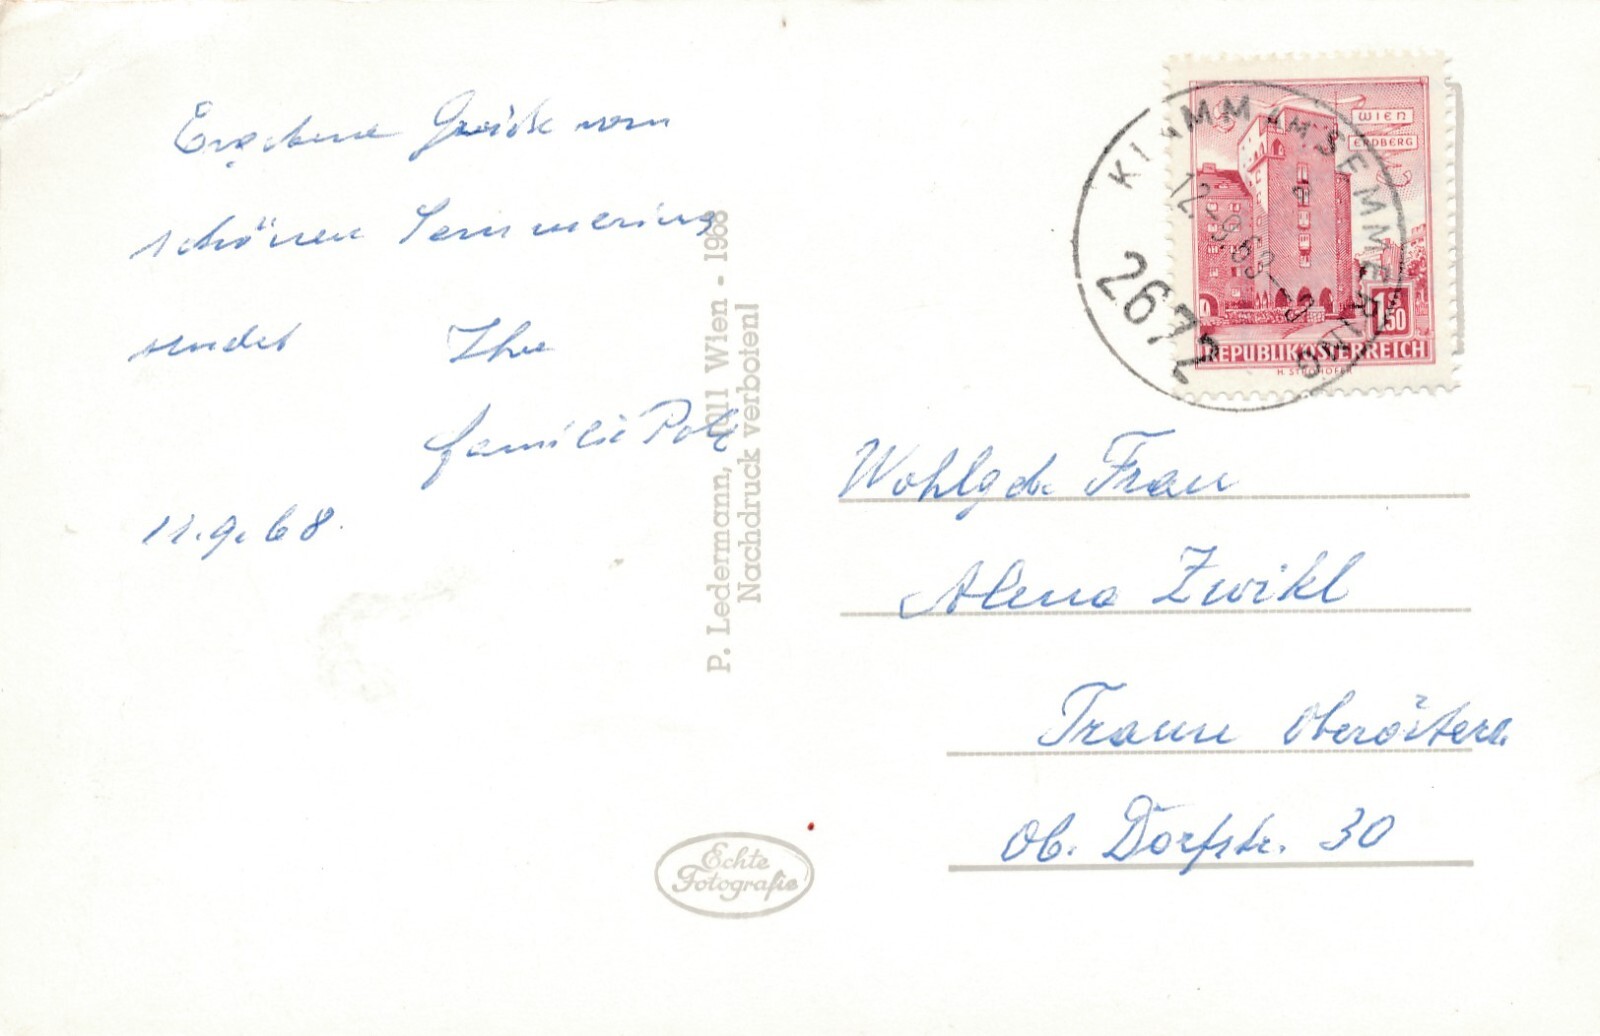 Ergebene Grüße vom
schönen Semmering
sendet Ihre
Familie
11.9.68.
P. Ledermann, 1011 Wien - 1968
Nachdruck verboten!
Echte
Fotografie
WIEN
ERDBERG
1.50
REPUBLIK ÖSTERREICH
H. STROHOFER
KLAMM AM SEMMERING
12.-9.68-9
2672
Wohlgeb. Frau
Alena Zwikl
Traun Oberösterr.
Ob. Dorfstr. 30